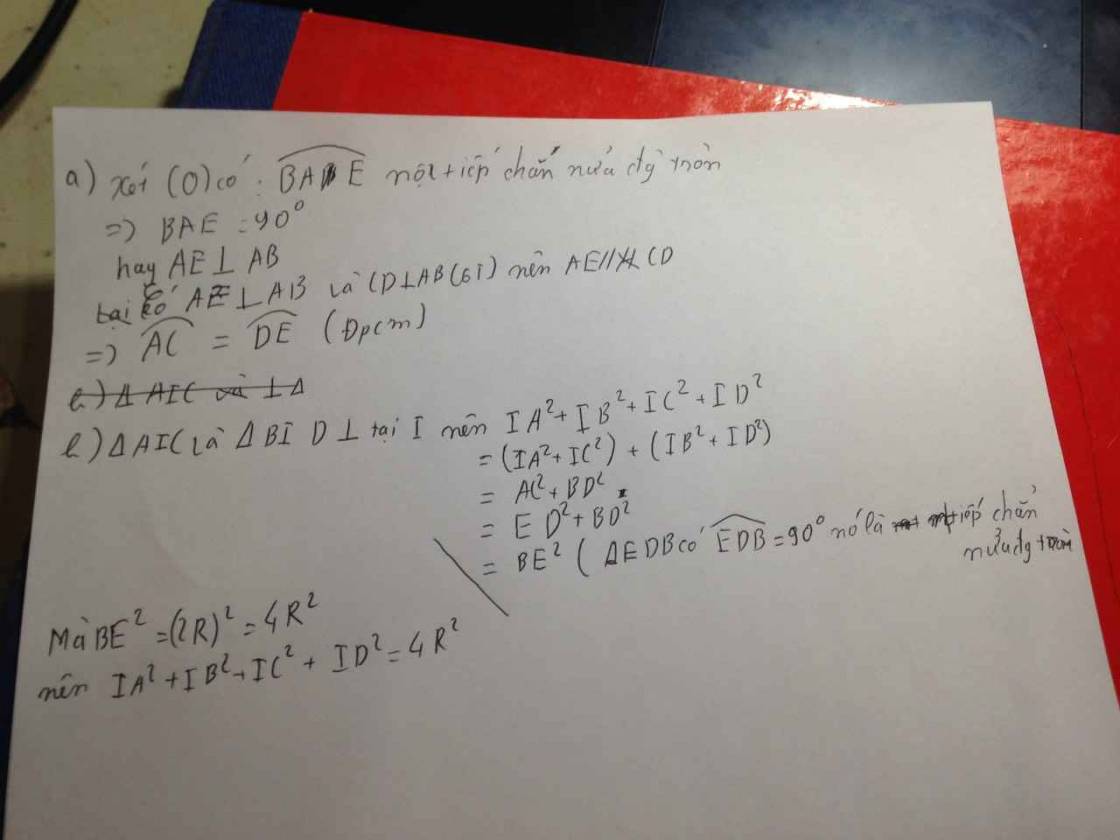 a) Xét (O) có: BAE nội tiếp chắn nửa đg tròn
=> BAE = 90°
hay AE ⊥ AB
có AE ⊥ AB và CD ⊥ AB (tại I) nên AE // CD
=> AC = DE (Đpcm)
b) Δ AIC và ⊥ Δ
b) Δ AIC và Δ BI D ⊥ tại I nên IA² + IB² + IC² + ID²
= (IA² + IC²) + (IB² + ID²)
= AC² + BD²
= ED² + BD²
= BE² ( Δ EDB có EDB = 90° nó là tiếp chắn
nửa đg tròn
Mà BE² = (2R)² = 4R²
nên IA² + IB² + IC² + ID² = 4R²